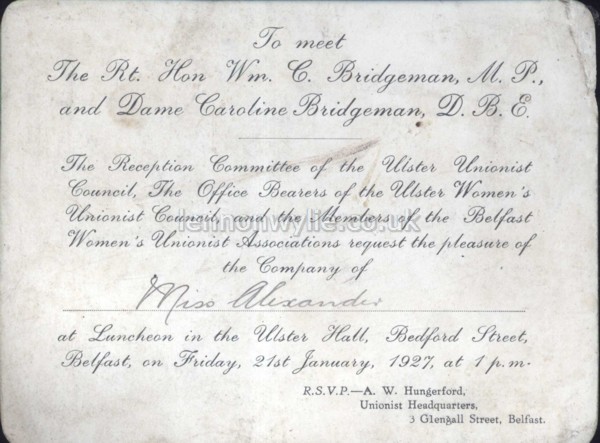 To meet
The Rt. Hon Wm. C. Bridgeman, M. P.,
and Dame Caroline Bridgeman, D. B. E.
The Reception Committee of the Ulster Unionist
Council, The Office Bearers of the Ulster Women's
Unionist Council, and the Members of the Belfast
lennonwylie.co.uk
Women's Unionist Associations request the pleasure of
the Company of
Miss Alexander
at Luncheon in the Ulster Hall, Bedford Street,
Belfast, on Friday, 21st January, 1927, at 1 p.m.
R.S.V.P.—A. W. Hungerford,
Unionist Headquarters,
3 Glengall Street, Belfast.